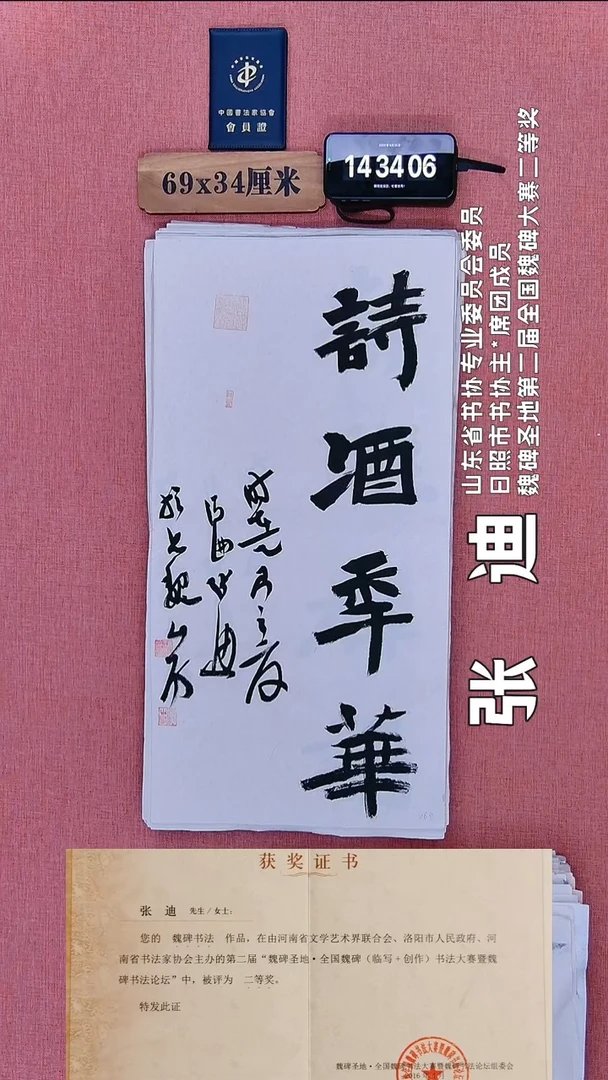 中國書法家協會
會員證
69x34厘米
14 34 06
詩酒季華
山东省书协专业委员会委员
日照市书协主*席团成员
魏碑圣地第二届全国魏碑大赛二等奖
张迪
获奖证书
张 迪 先生/女士:
您的 魏碑书法 作品,在由河南省文学艺术界联合会、洛阳市人民政府、河
南省书法家协会主办的第二届“魏碑圣地·全国魏碑(临写+创作)书法大赛暨魏
碑书法论坛”中,被评为 二等奖。
特发此证
魏碑圣地·全国魏碑书法大赛暨魏碑书法论坛组委会